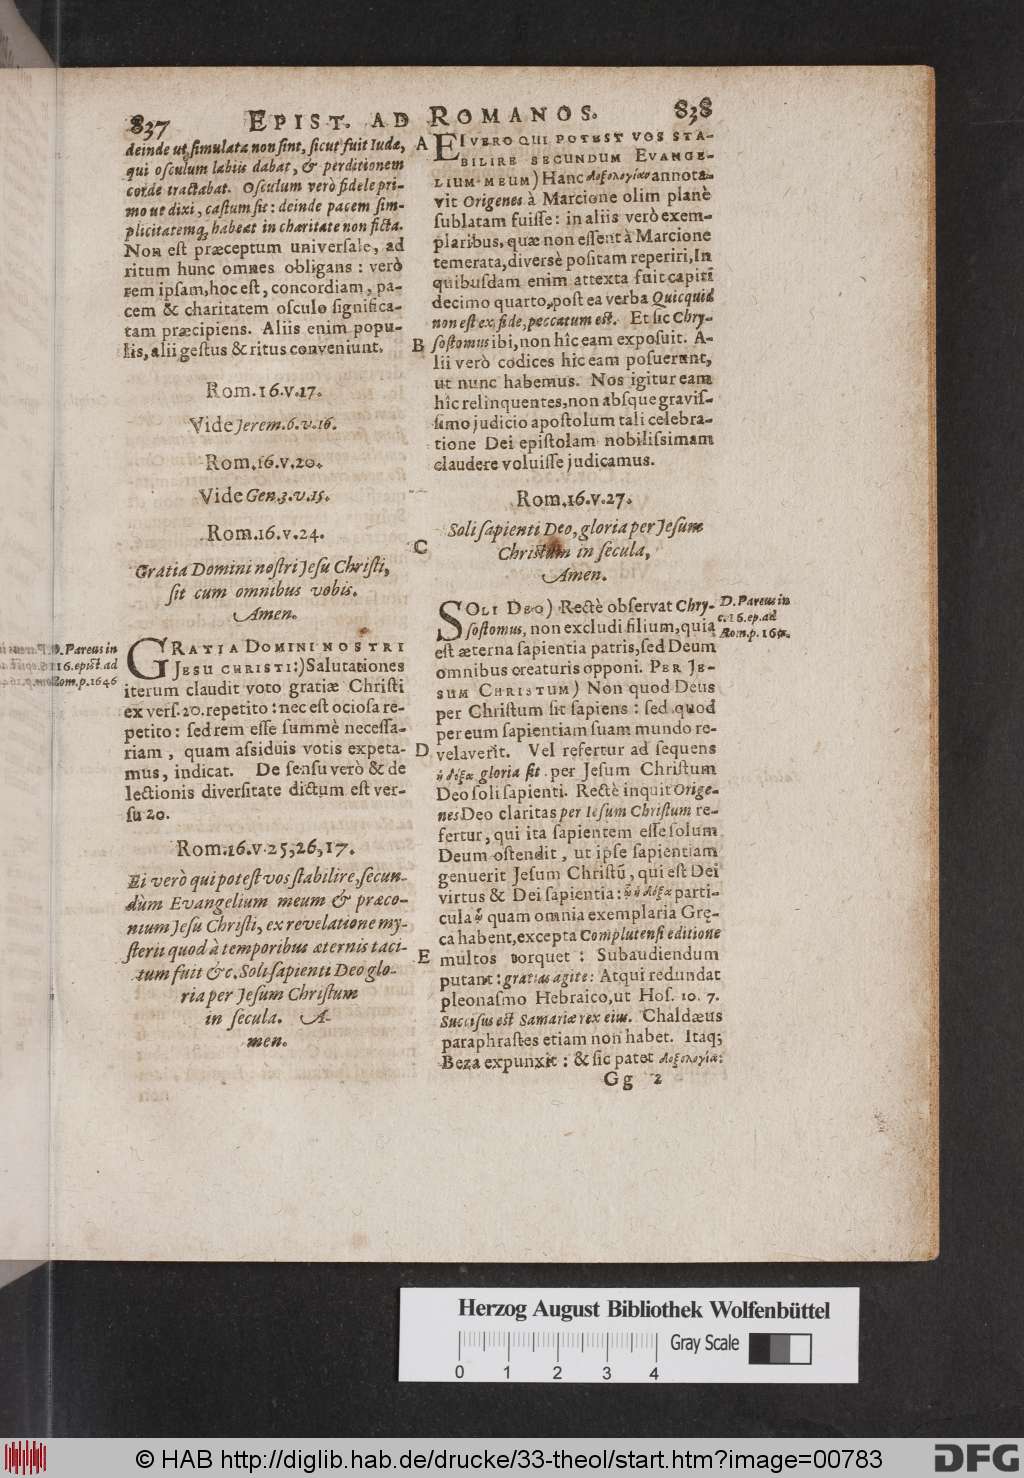 837
EPIST. AD ROMANOS.
838
deinde ut simulata non sint, sicut fuit Iudæ,
qui osculum labiis dabat, & perditionem
corde tractabat. Osculum verò fidele pri-
mo ut dixi, castum sit: deinde pacem sim-
plicitatemq́, habeat in charitate non ficta.
Non est præceptum universale, ad
ritum hunc omnes obligans: verò
rem ipsam, hoc est, concordiam, pa-
cem & charitatem osculo significa-
tam præcipiens. Aliis enim popu-
lis, alii gestus & ritus conveniunt.
Rom. 16. v. 17.
Vide Jerem. 6. v. 16.
Rom. 16. v. 20.
Vide Gen. 3. v. 15.
Rom. 16. v. 24.
Gratia Domini nostri Jesu Christi,
sit cum omnibus vobis.
Amen.
D. Pareus in
16. epist. ad
Rom. p. 1646
GRATIA DOMINI NOSTRI
JESU CHRISTI:) Salutationes
iterum claudit voto gratiæ Christi
ex vers. 20. repetito: nec est ociosa re-
petito: sed rem esse summè necessa-
riam, quam assiduis votis expeta-
mus, indicat. De sensu verò & de
lectionis diversitate dictum est ver-
su 20.
Rom. 16. v. 25, 26, 17.
Ei verò qui potest vos stabilire, secun-
dùm Evangelium meum & præco-
nium Jesu Christi, ex revelatione my-
sterii quod à temporibus æternis taci-
tum fuit &c. Soli sapienti Deo glo-
ria per Jesum Christum
in secula. A-
men.
A
B
C
D
E
EI VERO QUI POTEST VOS STA-
BILIRE SECUNDUM EVANGE-
LIUM MEUM) Hanc δοξολογίαν annota-
vit Origenes à Marcione olim planè
sublatam fuisse: in aliis verò exem-
plaribus, quæ non essent à Marcione
temerata, diversè positam reperiri, In
quibusdam enim attexta fuit capiti
decimo quarto, post ea verba Quicquid
non est ex fide, peccatum est. Et sic Chry-
sostomus ibi, non hîc eam exposuit. A-
lii verò codices hîc eam posuerunt,
ut nunc habemus. Nos igitur eam
hîc relinquentes, non absque gravis-
simo judicio apostolum tali celebra-
tione Dei epistolam nobilissimam
claudere voluisse judicamus.
Rom. 16. v. 27.
Soli sapienti Deo, gloria per Jesum
Christum in secula,
Amen.
SOLI DEO) Rectè observat Chry-
sostomus, non excludi filium, quia
est æterna sapientia patris, sed Deum
omnibus creaturis opponi. PER JE-
SUM CHRISTUM) Non quod Deus
per Christum sit sapiens: sed quod
per eum sapientiam suam mundo re-
velaverit. Vel refertur ad sequens
ἡ δόξα gloria sit per Jesum Christum
Deo soli sapienti. Rectè inquit Orige-
nes Deo claritas per Iesum Christum re-
fertur, qui ita sapientem esse solum
Deum ostendit, ut ipse sapientiam
genuerit Jesum Christũ, qui est Dei
virtus & Dei sapientia: ᾧ ἡ δόξα parti-
cula ᾧ quam omnia exemplaria Gre-
ca habent, excepta Complutensi editione
multos torquet: Subaudiendum
putant: gratias agite: Atqui redundat
pleonasmo Hebraico, ut Hos. 10. 7.
Succisus est Samariæ rex eius. Chaldæus
paraphrastes etiam non habet. Itaq;
Beza expunxit: & sic patet δοξολογία:
D. Pareus in
c. 16. ep. ad
Rom. p.
Gg 2
Herzog August Bibliothek Wolfenbüttel
Gray Scale
0 1 2 3 4
© HAB http://diglib.hab.de/drucke/33-theol/start.htm?image=00783
DFG